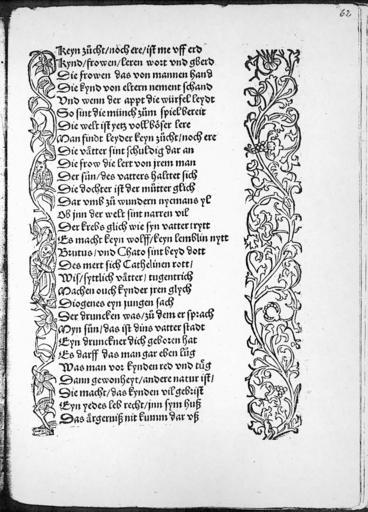 62
Keyn zücht/noch ere/ist me vff erd
Kynd/frowen/leren wort vnd gberd
Die frowen das von mannen hand
Die kynd von eltern nement schand
Vnd wenn der appt die würfel leydt
So sint die münch zům spiel bereit
Die welt ist yetz voll böser lere
Man findt leyder keyn zücht/noch ere
Die vätter sint schuldig dar an
Die frow die lert von jrem man
Der sůn/des vatters haltet sich
Die dochter ist der můtter glich
Dar vmb zů wundern nyemans yl
Ob jnn der welt sint narren vil
Der krebs glich wie syn vatter trytt
Es macht keyn wolff/keyn lemblin nytt
Brutus/vnd Chato sint beyd dott
Des mert sich Cathelinen rott/
Wis/syttlich vätter/tugentrich
Machen ouch kynder jren glych
Diogenes eyn jungen sach
Der druncken was/zů dem er sprach
Myn sůn/das ist dins vatter stadt
Eyn drunckner dich geboren hat
Es darff das man gar eben lůg
Was man vor kynden red vnd tůg
Dann gewonheyt/andere natur ist/
Die macht/das kynden vil gebrist
Eyn yedes leb recht/jnn sym huß
Das ärgerniß nit kumm dar vß